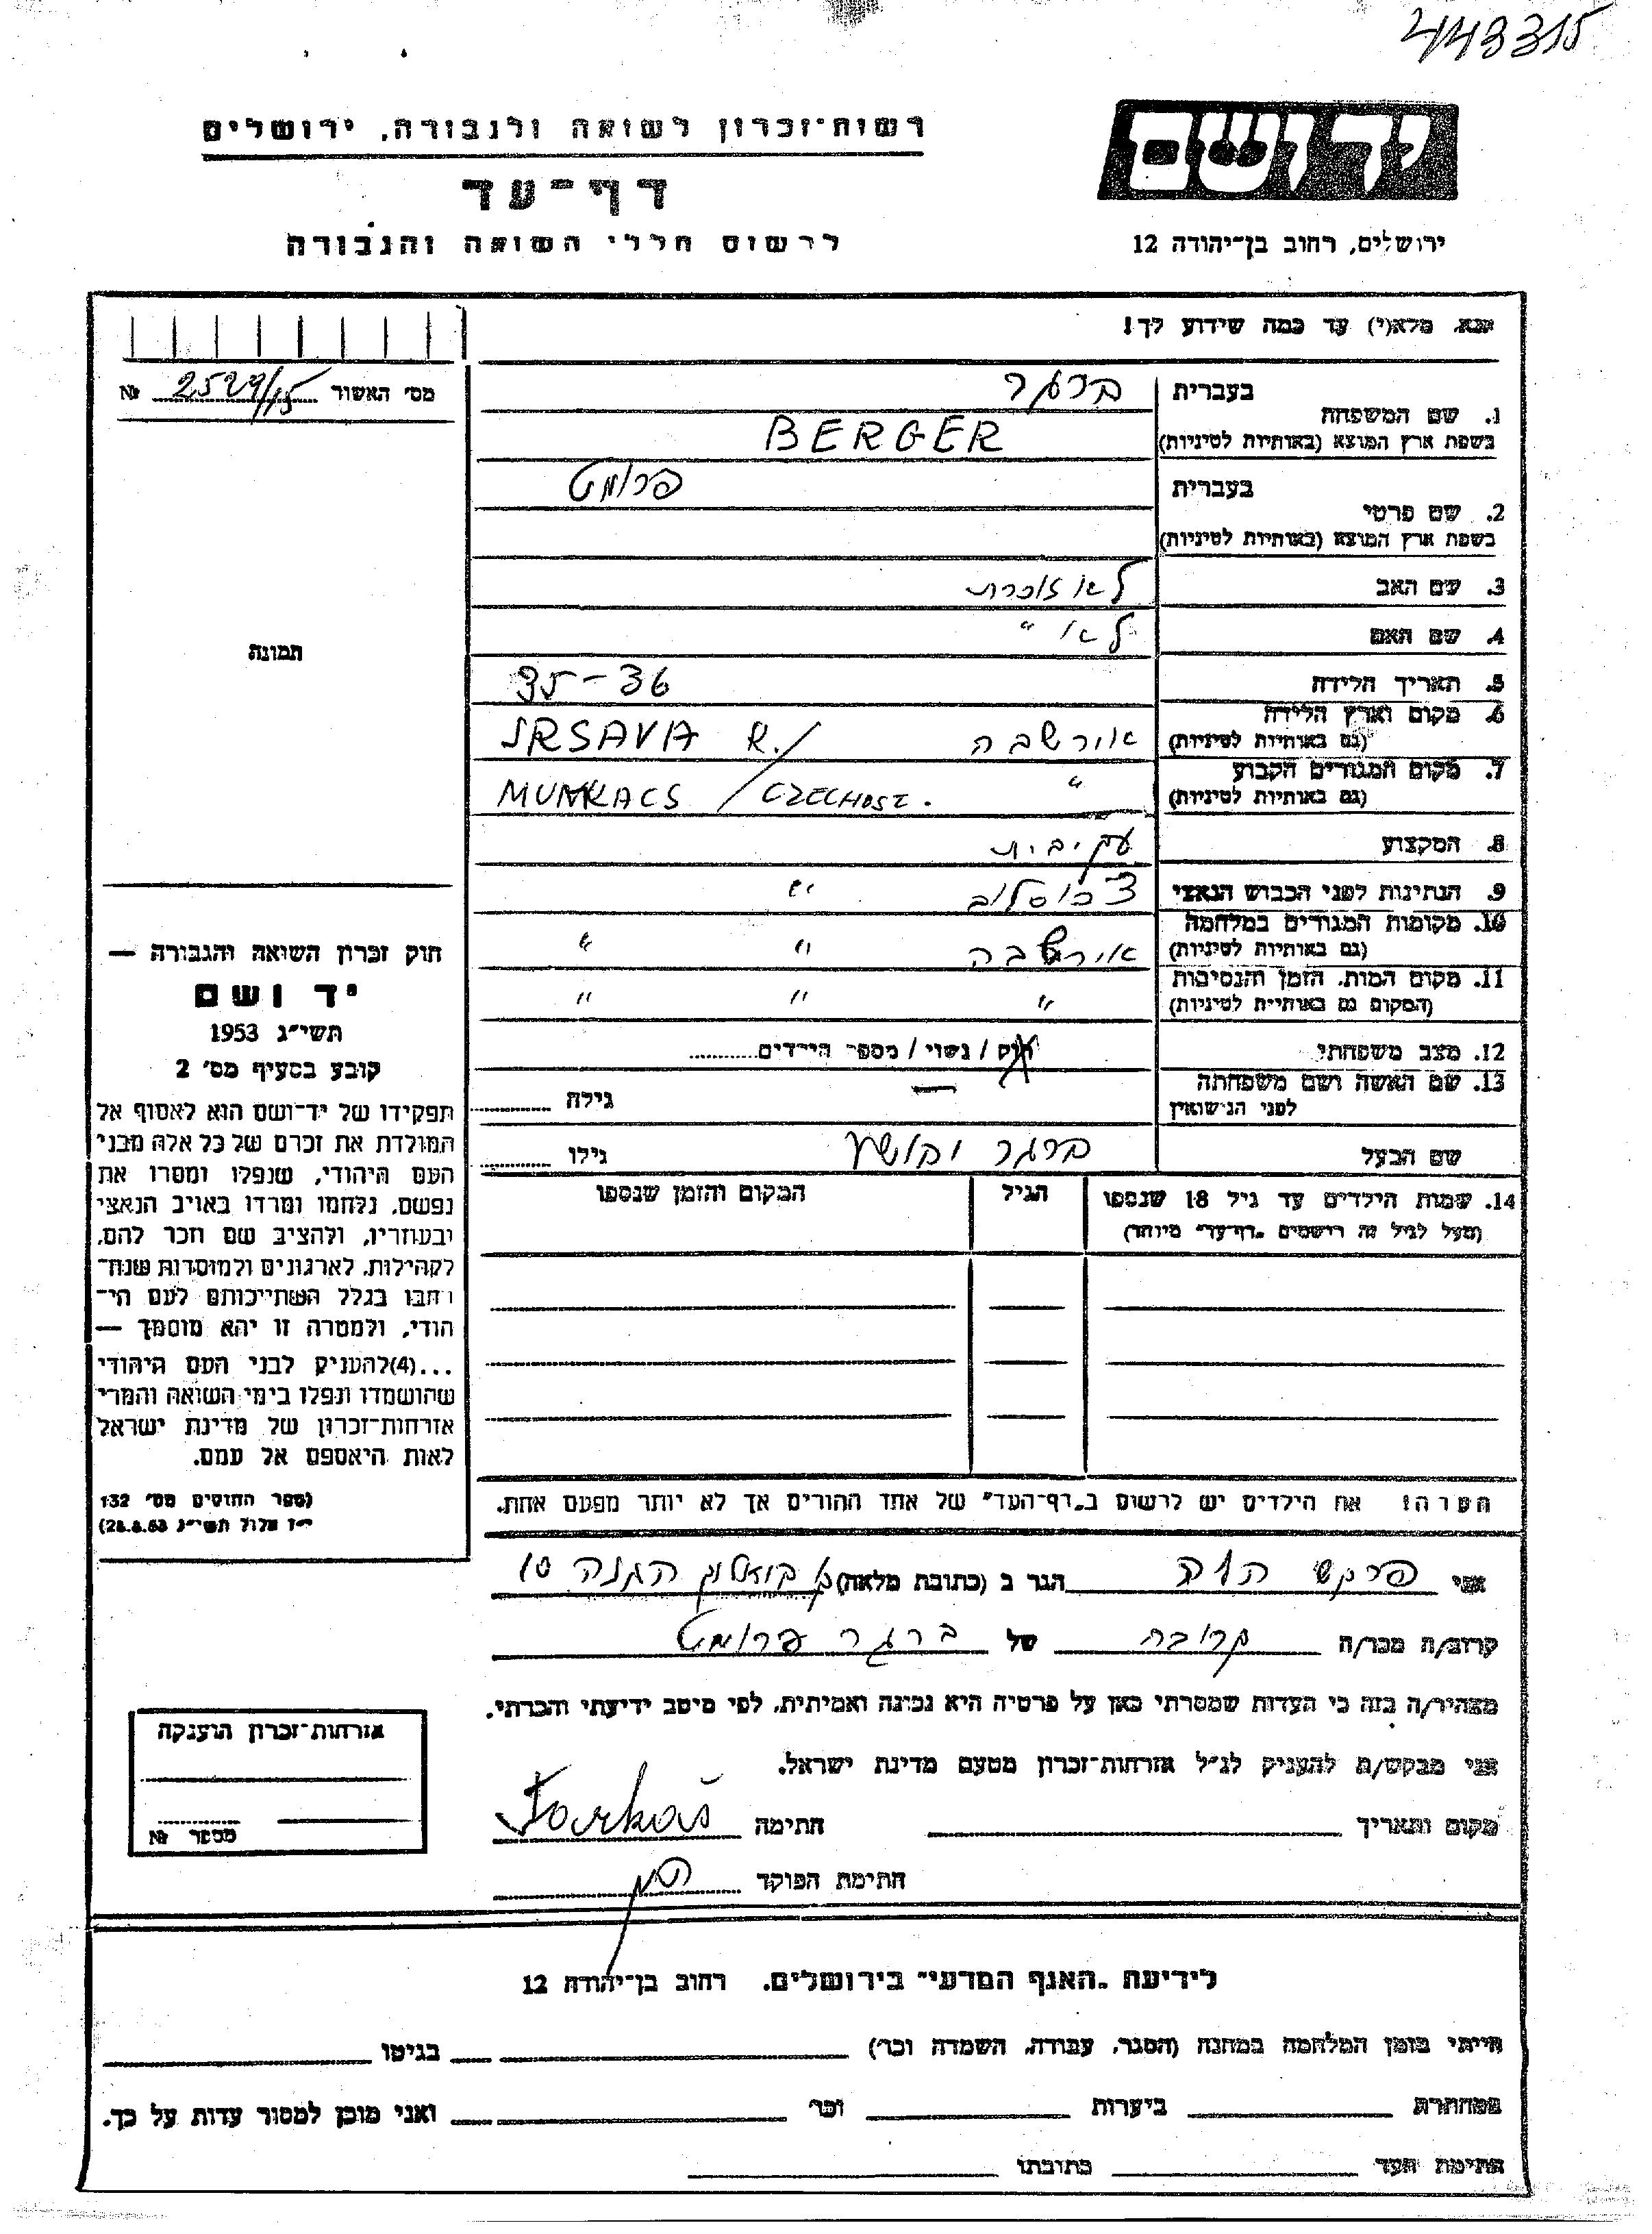 443315
יד ושם
רשות־זכרון לשואה ולגבורה, ירושלים
דף־עד
לרשום חללי השואה והגבורה
ירושלים, רחוב בן־יהודה 12
נא מלא(י) עד כמה שידוע לך!
מס' האשור 2529/15 №
תמונה
1. שם המשפחה
בעברית ברגר
בשפת ארץ המוצא (באותיות לטיניות) BERGER
2. שם פרטי
בעברית פרומט
בשפת ארץ המוצא (באותיות לטיניות)
3. שם האב לא זוכרת
4. שם האם לא "
5. תאריך הלידה 35-36
6. מקום וארץ הלידה
(גם באותיות לטיניות) אורשבה IRSAVA K./
7. מקום המגורים הקבוע
(גם באותיות לטיניות) " MUNKACS / CZECHOSL.
8. המקצוע עקיבית
9. הנתינות לפני הכבוש הנאצי צכוסלוב "
10. מקומות המגורים במלחמה
(גם באותיות לטיניות) אורשבה " "
11. מקום המות, הזמן והנסיבות
(המקום גם באותיות לטיניות) " " "
12. מצב משפחתי רווק / נשוי / מספר הילדים
13. שם האשה ושם משפחתה
לפני הנישואין — גילה
שם הבעל ברגר גילו
14. שמות הילדים עד גיל 18 שנספו
(מעל לגיל זה רושמים "דף־עד" מיוחד)
הגיל
המקום והזמן שנספו
חוק זכרון השואה והגבורה —
יד ושם
תשי"ג 1953
קובע בסעיף מס' 2
תפקידו של יד־ושם הוא לאסוף אל
המולדת את זכרם של כל אלה מבני
העם היהודי, שנפלו ומסרו את
נפשם, נלחמו ומרדו באויב הנאצי
ובעוזריו, ולהציב שם וזכר להם,
לקהילות, לארגונים ולמוסדות שנח־
רבו בגלל השתייכותם לעם הי־
הודי, ולמטרה זו יהא מוסמך —
...(4)להעניק לבני העם היהודי
שהושמדו ונפלו בימי השואה והמרי
אזרחות־זכרון של מדינת ישראל
לאות היאספם אל עמם.
(ספר החוקים מס' 132
י"ז אלול תשי"ג 28.8.53)
הערה: את הילדים יש לרשום ב"דף־העד" של אחד ההורים אך לא יותר מפעם אחת.
אני פרקש הגר ב (כתובת מלאה) ק ההגנה 10
קרוב/ה מכר/ה קרובה של ברגר פרומט
מצהיר/ה בזה כי העדות שמסרתי כאן על פרטיה היא נכונה ואמיתית, לפי מיטב ידיעתי והכרתי.
אני מבקש/ת להעניק לנ"ל אזרחות־זכרון מטעם מדינת ישראל.
מקום ותאריך חתימה Farkaš
חתימת הפוקד
אזרחות־זכרון הוענקה
מספר №
לידיעת "האגף המדעי" בירושלים, רחוב בן־יהודה 12
הייתי בזמן המלחמה במחנה (הסגר, עבודה, השמדה וכו') בגיטו
במחתרת ביערות וכו' ואני מוכן למסור עדות על כך.
חתימת העד כתובתו